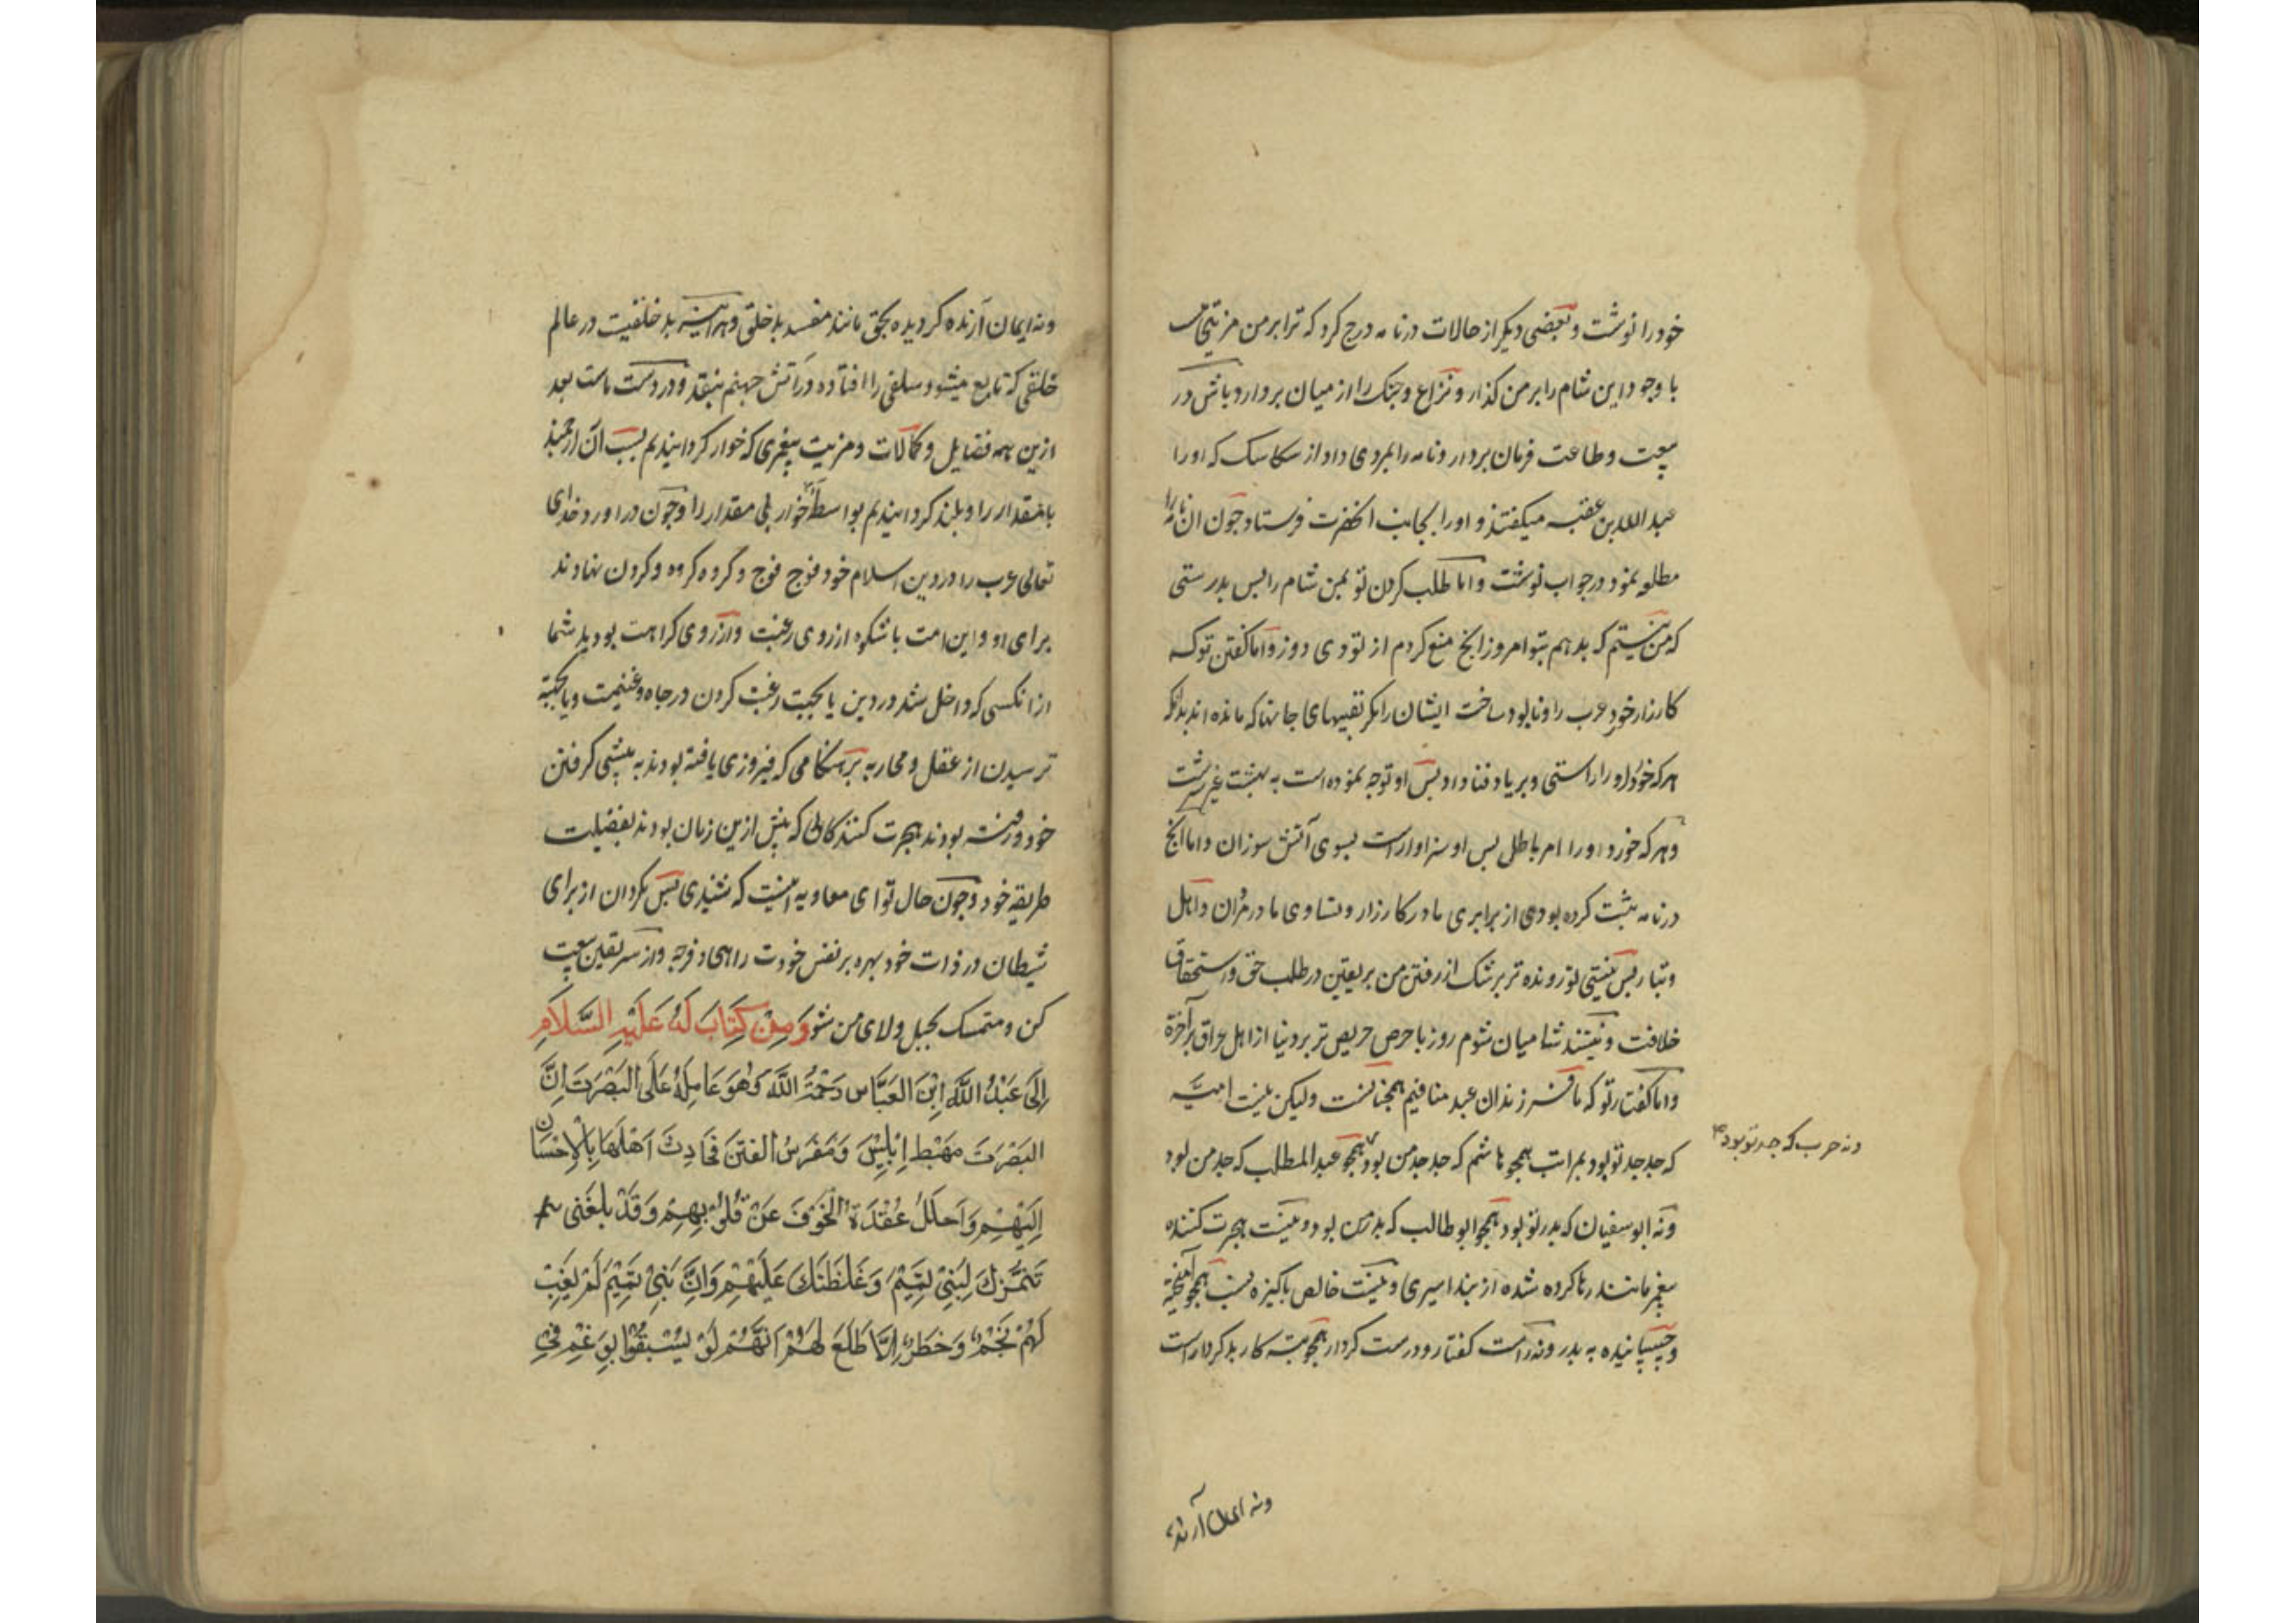 خود را نوشت و بعضی دیکر از حالات در نامه درج کرد که ترا بر من مزیتی نیست
با وجود این شام را بر من کذار و نزاع و جنک را از میان بردار و باش در
بیعت و طاعت فرمان بردار و نامه را بمردی داد از سکاسک که او را
عبد الله بن عقبه میکفتند و او را بجانب انحضرت فرستاد و چون ان نامه را
مطلعه نمود در جواب نوشت و اما طلب کردن تو بمن شام را پس بدرستی
که من نیستم که بدهم بتو امروز انچ منع کردم از تو دی روز و اما کفتن تو که
کارزار خورد عرب را و نابود ساخت ایشان را مکر نفسهای جانها که مانده اند بدانکه
هر که خورد او را راستی و بریاد فنا داد پس او توجه نموده است به بهشت عنبر سرشت
و هر که خورد او را امر باطل پس او سزاوار است بسوی آتش سوزان و اما انچ
در نامه ثبت کرده بودی از برابری ما در کارزار و تساوی ما در مردان و اهل
و تبار پس نیستی تو رونده تر بر شک از رفتن من بر یقین در طلب حق و استحقاق
خلافت و نیستند شامیان شوم روز با حرص حریص تر بر دنیا از اهل عراق بر آخرة
و اما کفتار تو که ما فرزندان عبد منافیم همچنانست ولیکن نیست امیّه
که جد جد تو بود بمراتب همچو هاشم که جد جد من بود همچو عبد المطلب که جد من بود
ونه حرب که جد تو بود
ونه ابو سفیان که پدر تو بود همچو ابو طالب که پدر من بود و نیست هجرت کننده
پیغمبر مانند رها کرده شده از بند اسیری و نیست خالص پاکیزه نسب همچو آمیخته
و چسپانیده به پدر ونه راست کفتار و درست کردار همچو تبه کار بد کردار است
ونه ایمان آرنده
ونه ایمان آرنده کردیده بحق مانند مفسد بد خلق و هر اینه بد خلفیت در عالم
خلفی که تابع میشود سلفی را افتاده در آتش جهنم بنقد و در دست ماست بعد
ازین همه فضایل و کمالات و مزیت پیغمبری که خوار کردانیدیم بسبب آن ارجمند
بامقدار را و بلند کردانیدیم بواسطه خوار بی مقدار را و چون در اورد خدای
تعالی عرب را در دین اسلام خود فوج فوج و کروه کروه و کردن نهادند
برای او و این امت باشکوه از روی رغبت و از روی کراهت بودید شما
از انکسی که داخل شد در دین یا بجهت رغبت کردن در جاه و غنیمت و یا بجهة
ترسیدن از عقل و محاربه بر هنکامی که فیروزی یافته بودند به پیشی کرفتن
خود و رفته بودند هجرت کنندکانی که پیش ازین زمان بودند بفضیلت
طریقه خود و چون حال تو ای معاویه اینست که شنیدی پس مکردان از برای
شیطان در ذات خود بهره بر نفس خودت راهی و فرجه و از سر یقین بیعت
کن و متمسک بحبل ولای من شو وَمِنْ کِتَابَ لَهُ عَلَیْهِ السَّلَامِ
اِلَی عَبْدُ اللَّهِ اِبْنَ العَبَّاس رَحْمَتُ اللَّهَ وَهُوَ عَامِلُهُ عَلَی البَصْرَتَ اِنَّ
البَصْرَتَ مَهْبَط اِبْلِیْسَ وَمَغْرَسُ الفِتَنَ فَحَادِثَ اَهْلَهَا بِالْاِحْسَان
اِلَیْهِمْ وَاَحْلَلُ عُقْدَةُ الْخَوْفَ عَنْ قُلُوْبِهِمْ وَقَدْ بَلَغَنی
تَنَمُّرُكَ لِبَنِیْ تَمِیْمَ وَغَلْظَتَكَ عَلَیْهِمْ وَاِنَّ بَنِیْ تَمِیْمَ لَمْ یَغِبْ
لَهُمْ نَجْمٌ وَخَطَرٌ اِلَّا طَلَعَ لَهُمْ اَنَّهُمْ لَوْ یُسْبَقُوْا بِوَغَمٍ فِیْ